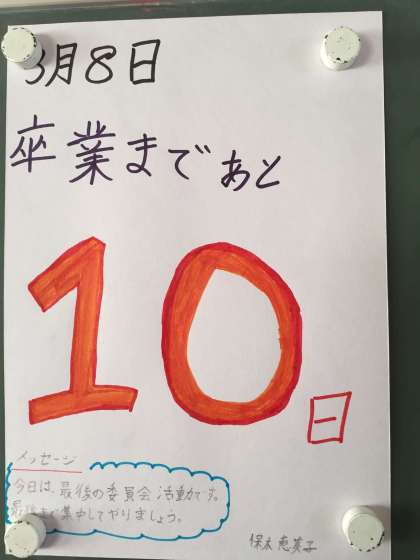 3月8日
卒業まであと
10日
メッセージ
今日は、最後の委員会活動です。
最後まで集中してやりましょう。
保木恵美子